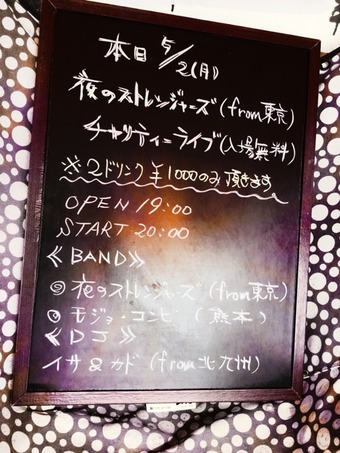 本日 5/2(月)
夜のストレンジャーズ(from東京)
チャリティーライブ(入場無料)
※2ドリンク¥1000のみ頂きます
OPEN 19:00
START 20:00
《BAND》
◎夜のストレンジャーズ(from東京)
◎モジョ・コンビ(熊本)
《DJ》
イサ&カド(from北九州)